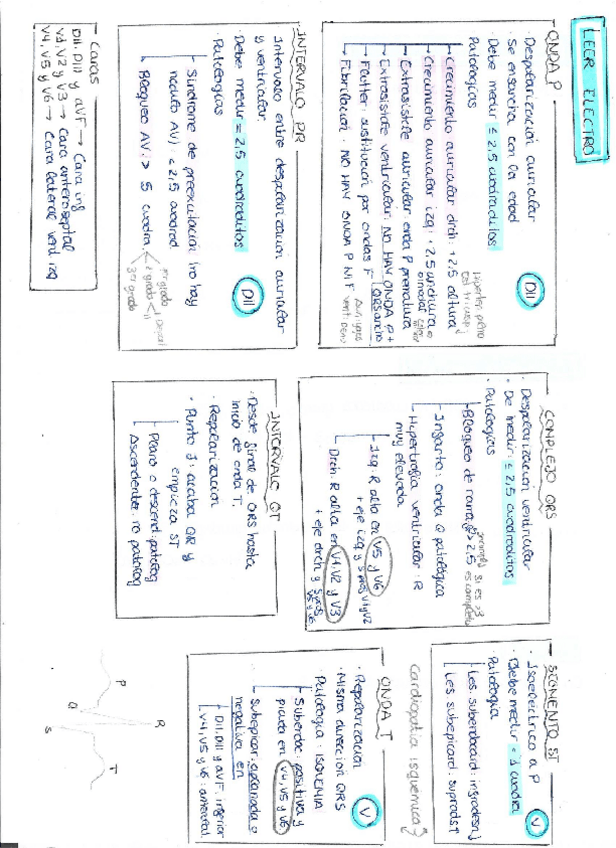 LEER ELECTRO
ONDA P
DII
· Despolarización auricular
· Se ensancha con la edad
· Debe medir ≤ 2,5 cuadraditos
Patologías
Crecimiento auricular drch: +2,5 altura
Crecimiento auricular izq: +2,5 anchura
Extrasístole auricular: onda P prematura
Extrasístole ventricular: NO HAY ONDA P +
QRS ancho
Flutter: sustitución por ondas F
Fibrilación: NO HAY ONDA P NI F
INTERVALO PR
DII
Intervalo entre despolarización auricular
y ventricular.
· Debe medir = 2,5 cuadraditos
· Patologías
Síndrome de preexcitación (no hay
nódulo AV): < 2,5 cuadrad.
Bloqueo AV: > 5 cuadra.
1er grado
2º grado
3er grado
Caras
DII, DIII y aVF → Cara inf
V1, V2 y V3 → Cara anteroseptal
V4, V5 y V6 → Cara lateral vent izq
COMPLEJO QRS
· Despolarización ventricular
· De medir: ≤ 2,5 cuadraditos
· Patologías
Bloqueo de rama: > 2,5
si es >3
es completo
Infarto: onda Q patológica
Hipertrofia ventricular: R
muy elevada
Izq: R alta en V5 y V6
+ eje izq y S V1 y V2
Drch: R alta en V1, V2 y V3
+ eje drch y S V5 y V6
INTERVALO QT
· Desde final de QRS hasta
inicio de onda T.
· Repolarización
· Punto J: acaba QR y
empieza ST
Plano o descend: patolog
Ascendente: no patolog
SEGMENTO ST
V
· Isoeléctrico a P
· Debe medir < 1 cuadra
· Patología
Les. subendocard: infradesn↓
Les. subepicard: suprads↑
cardiopatía isquémica
ONDA T
V
· Repolarización
· Misma dirección QRS
· Patología: ISQUEMIA
Subendoc: positiva y
picuda en V4, V5 y V6
Subepicar: aplanada o
negativa en
DII, DIII y aVF: inferior
V4, V5 y V6: anterolat
P
Q
R
S
T